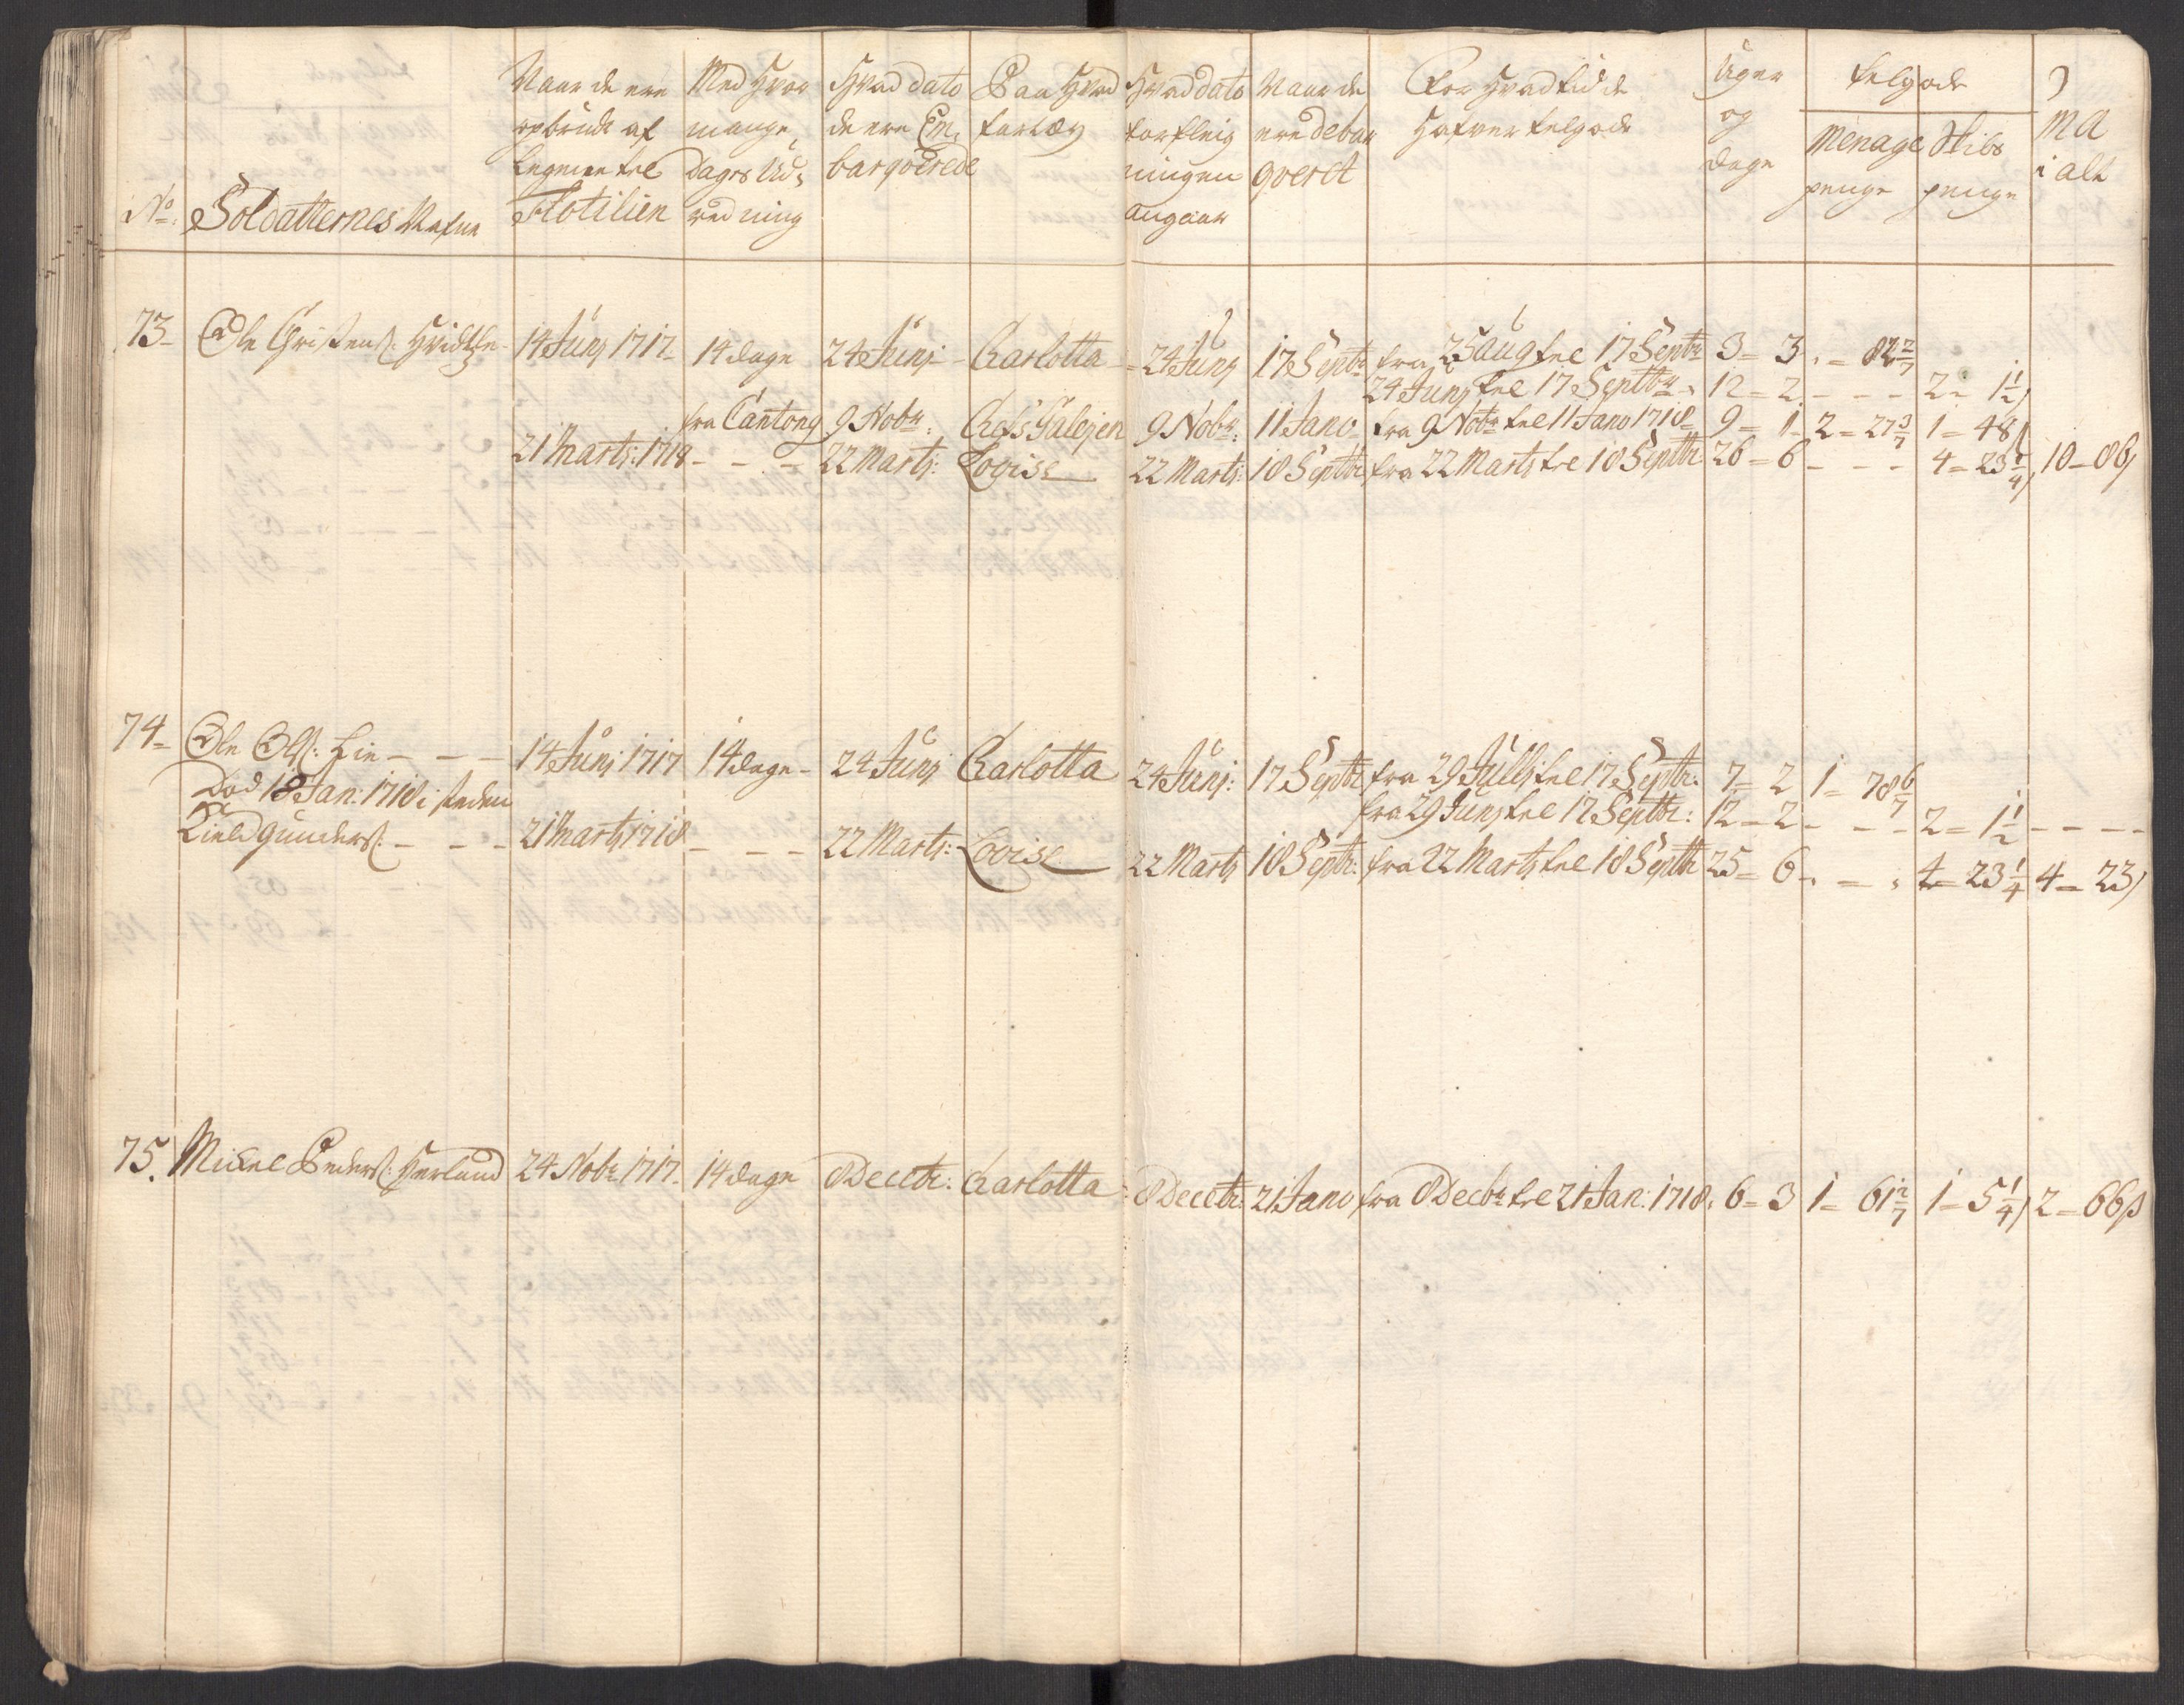 Naar de ere
opbrudt af
Legme til
Flotilien
Med Hvor
mange
Dages Ud-
redning
Hvad dato
de ere Em-
barqverede
Paa Hvad
fartøy
Hvad dato
forfleig
ningen
angaar
Naar de
ere debar
qveret
For Hvad tid de
Hafver tilgode
Uger
og
dage
tilgode
Menage
penge
Skibs
penge
MA
i alt
No: Soldatternes Nafne
73 Ole Christens: 14 Junj 1717 14 dage 24 Junj Carlotta 24 Junj 17 Septbr fra 25 Aug til 17 Septbr 3 = 3 - = 82 2/7
24 Junj til 17 Septbr 12 = 2 - - - 2 = 1 1/2
fra Cantong 9 Nobr: Chefs Galejen 9 Nobr: 11 Jano fra 9 Nobr til 11 Jano 1718 9 = 1 2 = 27 3/7 1 = 48
21 Marts: 1718 - - - 22 Marts: Lovise 22 Marts: 18 Septbr fra 22 Marts til 18 Septbr 26 = 6 - - - 4 = 23 1/4 10 = 86
74 Ole Ols: Lie - - - 14 Junj 1717 14 dage - 24 Junj Carlotta 24 Junj: 17 Septbr fra 29 Julli til 17 Septbr: 7 = 2 1 = 78 6/7
Død 18 Jan: 1718 i steden
fra 29 Junj til 17 Septbr: 12 = 2 - - - 2 = 1 1/2 - - - -
Kield Gunders: - - - 21 Marts 1718 - - - 22 Marts: Lovise 22 Marts 18 Septbr: fra 22 Marts til 18 Septbr 25 = 6 - = - 4 = 23 1/4 4 = 23
75. Mickel Peders: Herland 24 Nobr 1717 14 dage 8 Decbr: Carlotta 8 Decbr: 21 Jano fra 8 Decbr til 21 Jan: 1718 6 = 3 1 = 61 2/7 1 = 5 1/4 2 = 66 ß